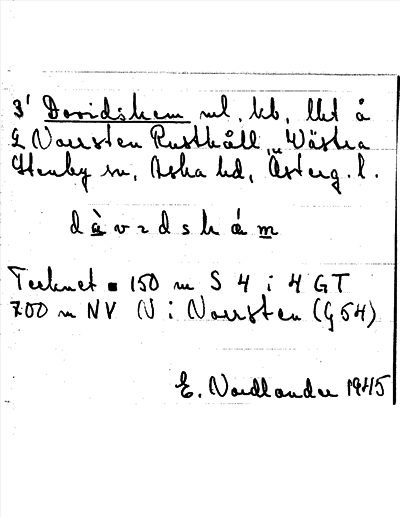 3' Davidshem ul, kb, lht å
G Norrsten Rusthåll, Västra
Stenby sn, Aska hd, Österg. l.
d à v ɪ d s h á m
Tecknet 150 m S 4 i 4 GT
700 m NV N i Norrsten (G 54)
E. Nordlander 1945